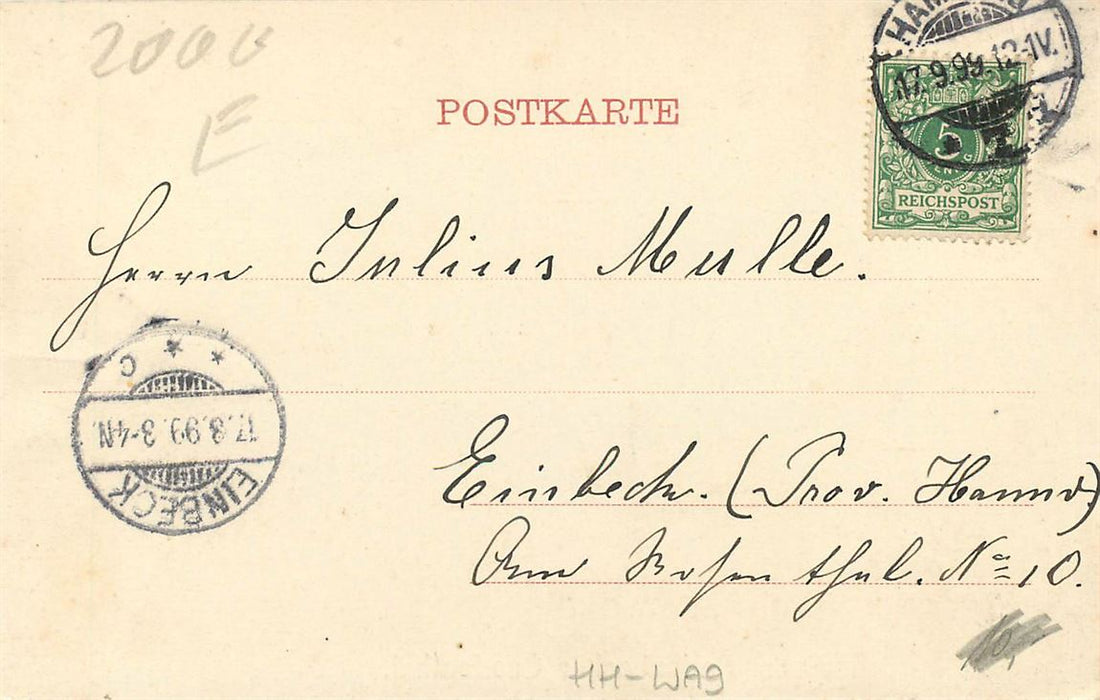 2000
E
POSTKARTE
HAMBURG
17.9.99.12-1V.
5
REICHSPOST
Herrn Julius Mulle.
C
17.9.99.3-4N.
EINBECK
Einbeck. (Prov. Hannov)
Am Rosenthal. No 10.
HH-WA9